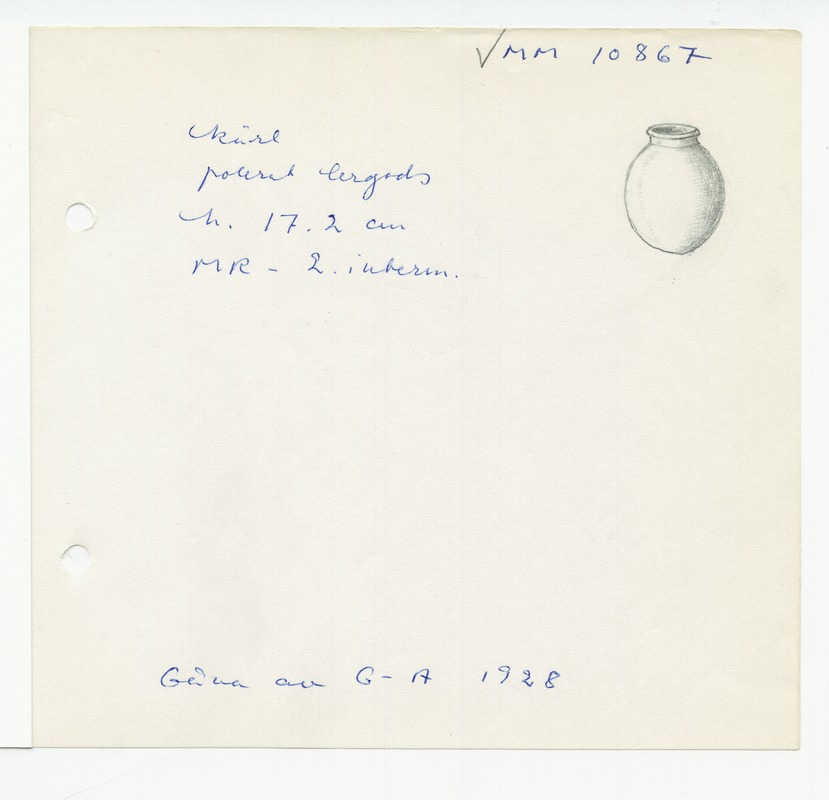 √MM 10867
kärl
polerat lergods
h. 17.2 cm
MR - 2. interm.
Gåva av G-A 1928